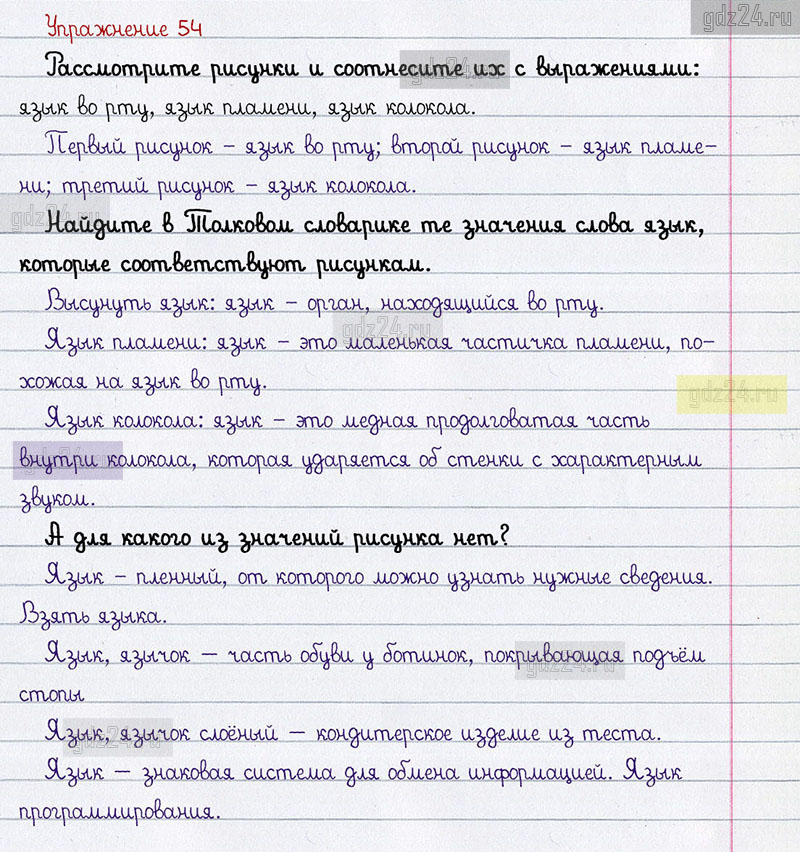 gdz24.ru
Упражнение 54
Рассмотрите рисунки и соотнесите их с выражениями:
gdz24.ru
язык во рту, язык пламени, язык колокола.
Первый рисунок – язык во рту; второй рисунок – язык пламе–
ни; третий рисунок – язык колокола.
gdz24.ru
Найдите в Толковом словарике те значения слова язык,
которые соответствуют рисункам.
Высунуть язык: язык – орган, находящийся во рту.
gdz24.ru
Язык пламени: язык – это маленькая частичка пламени, по–
хожая на язык во рту.
gdz24.ru
Язык колокола: язык – это медная продолговатая часть
внутри колокола, которая ударяется об стенки с характерным
gdz24.ru
звуком.
А для какого из значений рисунка нет?
Язык – пленный, от которого можно узнать нужные сведения.
Взять языка.
Язык, язычок – часть обуви у ботинок, покрывающая подъём
gdz24.ru
стопы
Язык, язычок слоёный – кондитерское изделие из теста.
gdz24.ru
Язык – знаковая система для обмена информацией. Язык
программирования.